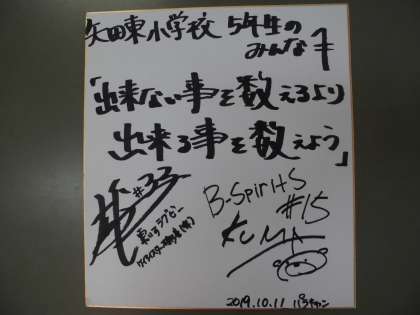 矢田東小学校 5年生の
みんなへ
「出来ない事を数えるより
出来る事を数えよう」
#33
B-Spirits
#15
KUMA
2019.10.11